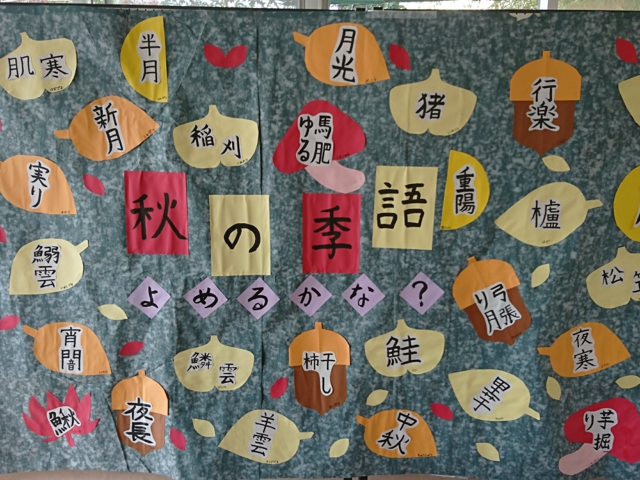 肌寒
半月
月光
猪
行楽
新月
稲刈
馬肥ゆる
実り
秋の季語
重陽
櫨
鰯雲
よめるかな？
弓張り月
松
宵闇
鱗雲
干し柿
鮭
里芋
夜寒
鰍
夜長
羊雲
中秋
芋掘り